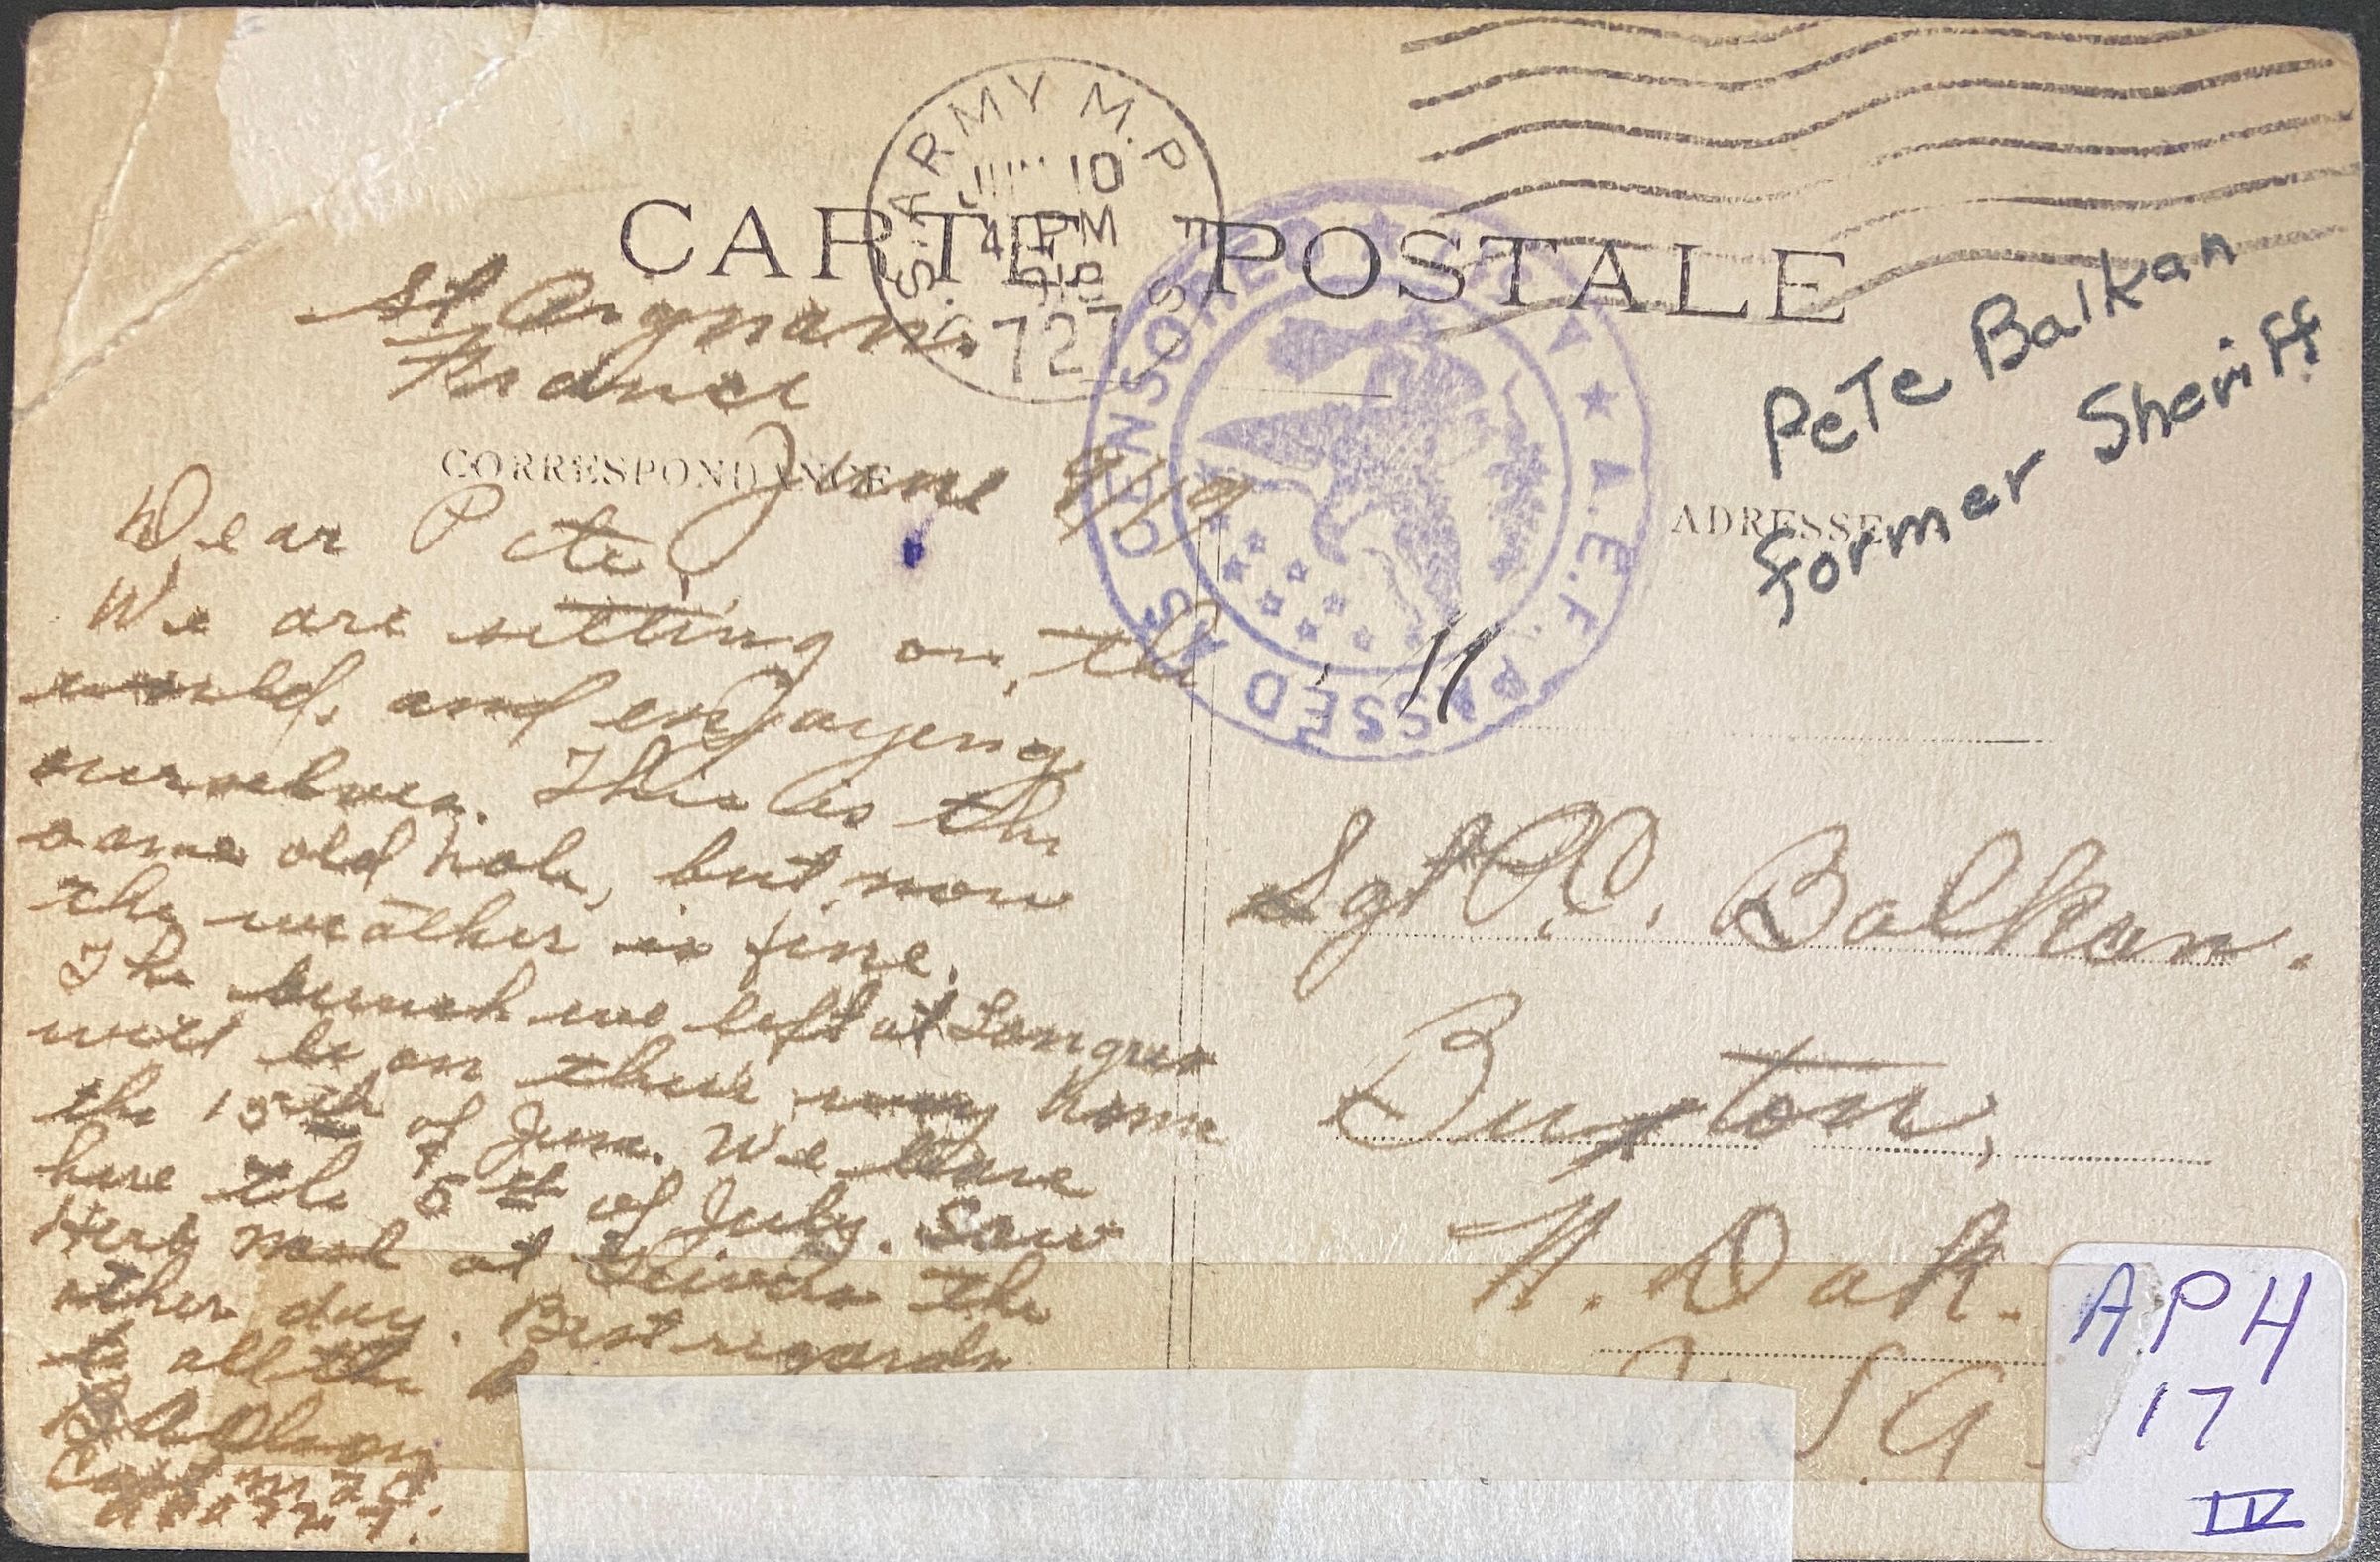 CARTE POSTALE
U.S. ARMY M.P.E.S.
10
4 PM
1919
727
A.E.F. PASSED AS CENSORED
St Aignan.
France
CORRESPONDANCE
June 9/19
ADRESSE
Pete Balkan
former Sheriff
Dear Pete,
We are sitting on the
world, and enjoying
ourselves. This is the
same old hole, but now
the weather is fine.
The bunch we left at Langres
will be on their way home
the 15th of June. We leave
here the 5th of July. Saw
Herb at Gievres the
other day. Best regards
to all the
Olson
Capt M.T.C.
APO 727.
11
Sgt P.O. Balkan.
Buxton,
N. Dak.
U.S.A
APH
17
IV